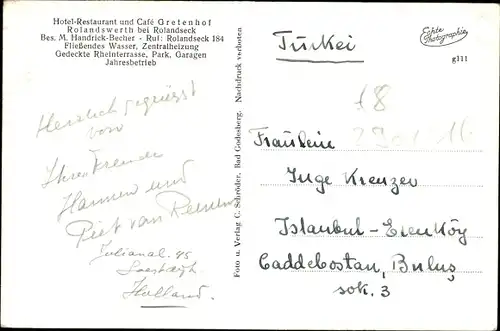 Hotel-Restaurant und Café Gretenhof
Rolandswerth bei Rolandseck
Bes. M. Handrick-Becher - Ruf: Rolandseck 184
Fließendes Wasser, Zentralheizung
Gedeckte Rheinterrasse, Park, Garagen
Jahresbetrieb
Herzlich gegrüsst
von
Ihren Freunden
Hannen und
Piet van
Julianal. 45
Holland.
Foto u. Verlag C. Schröder, Bad Godesberg. Nachdruck verboten
Türkei
Echte
Photographie
g111
18
Fräulein
Inge Krenzer
Istanbul-Erenköy
Caddebostan, Buluş
sok. 3